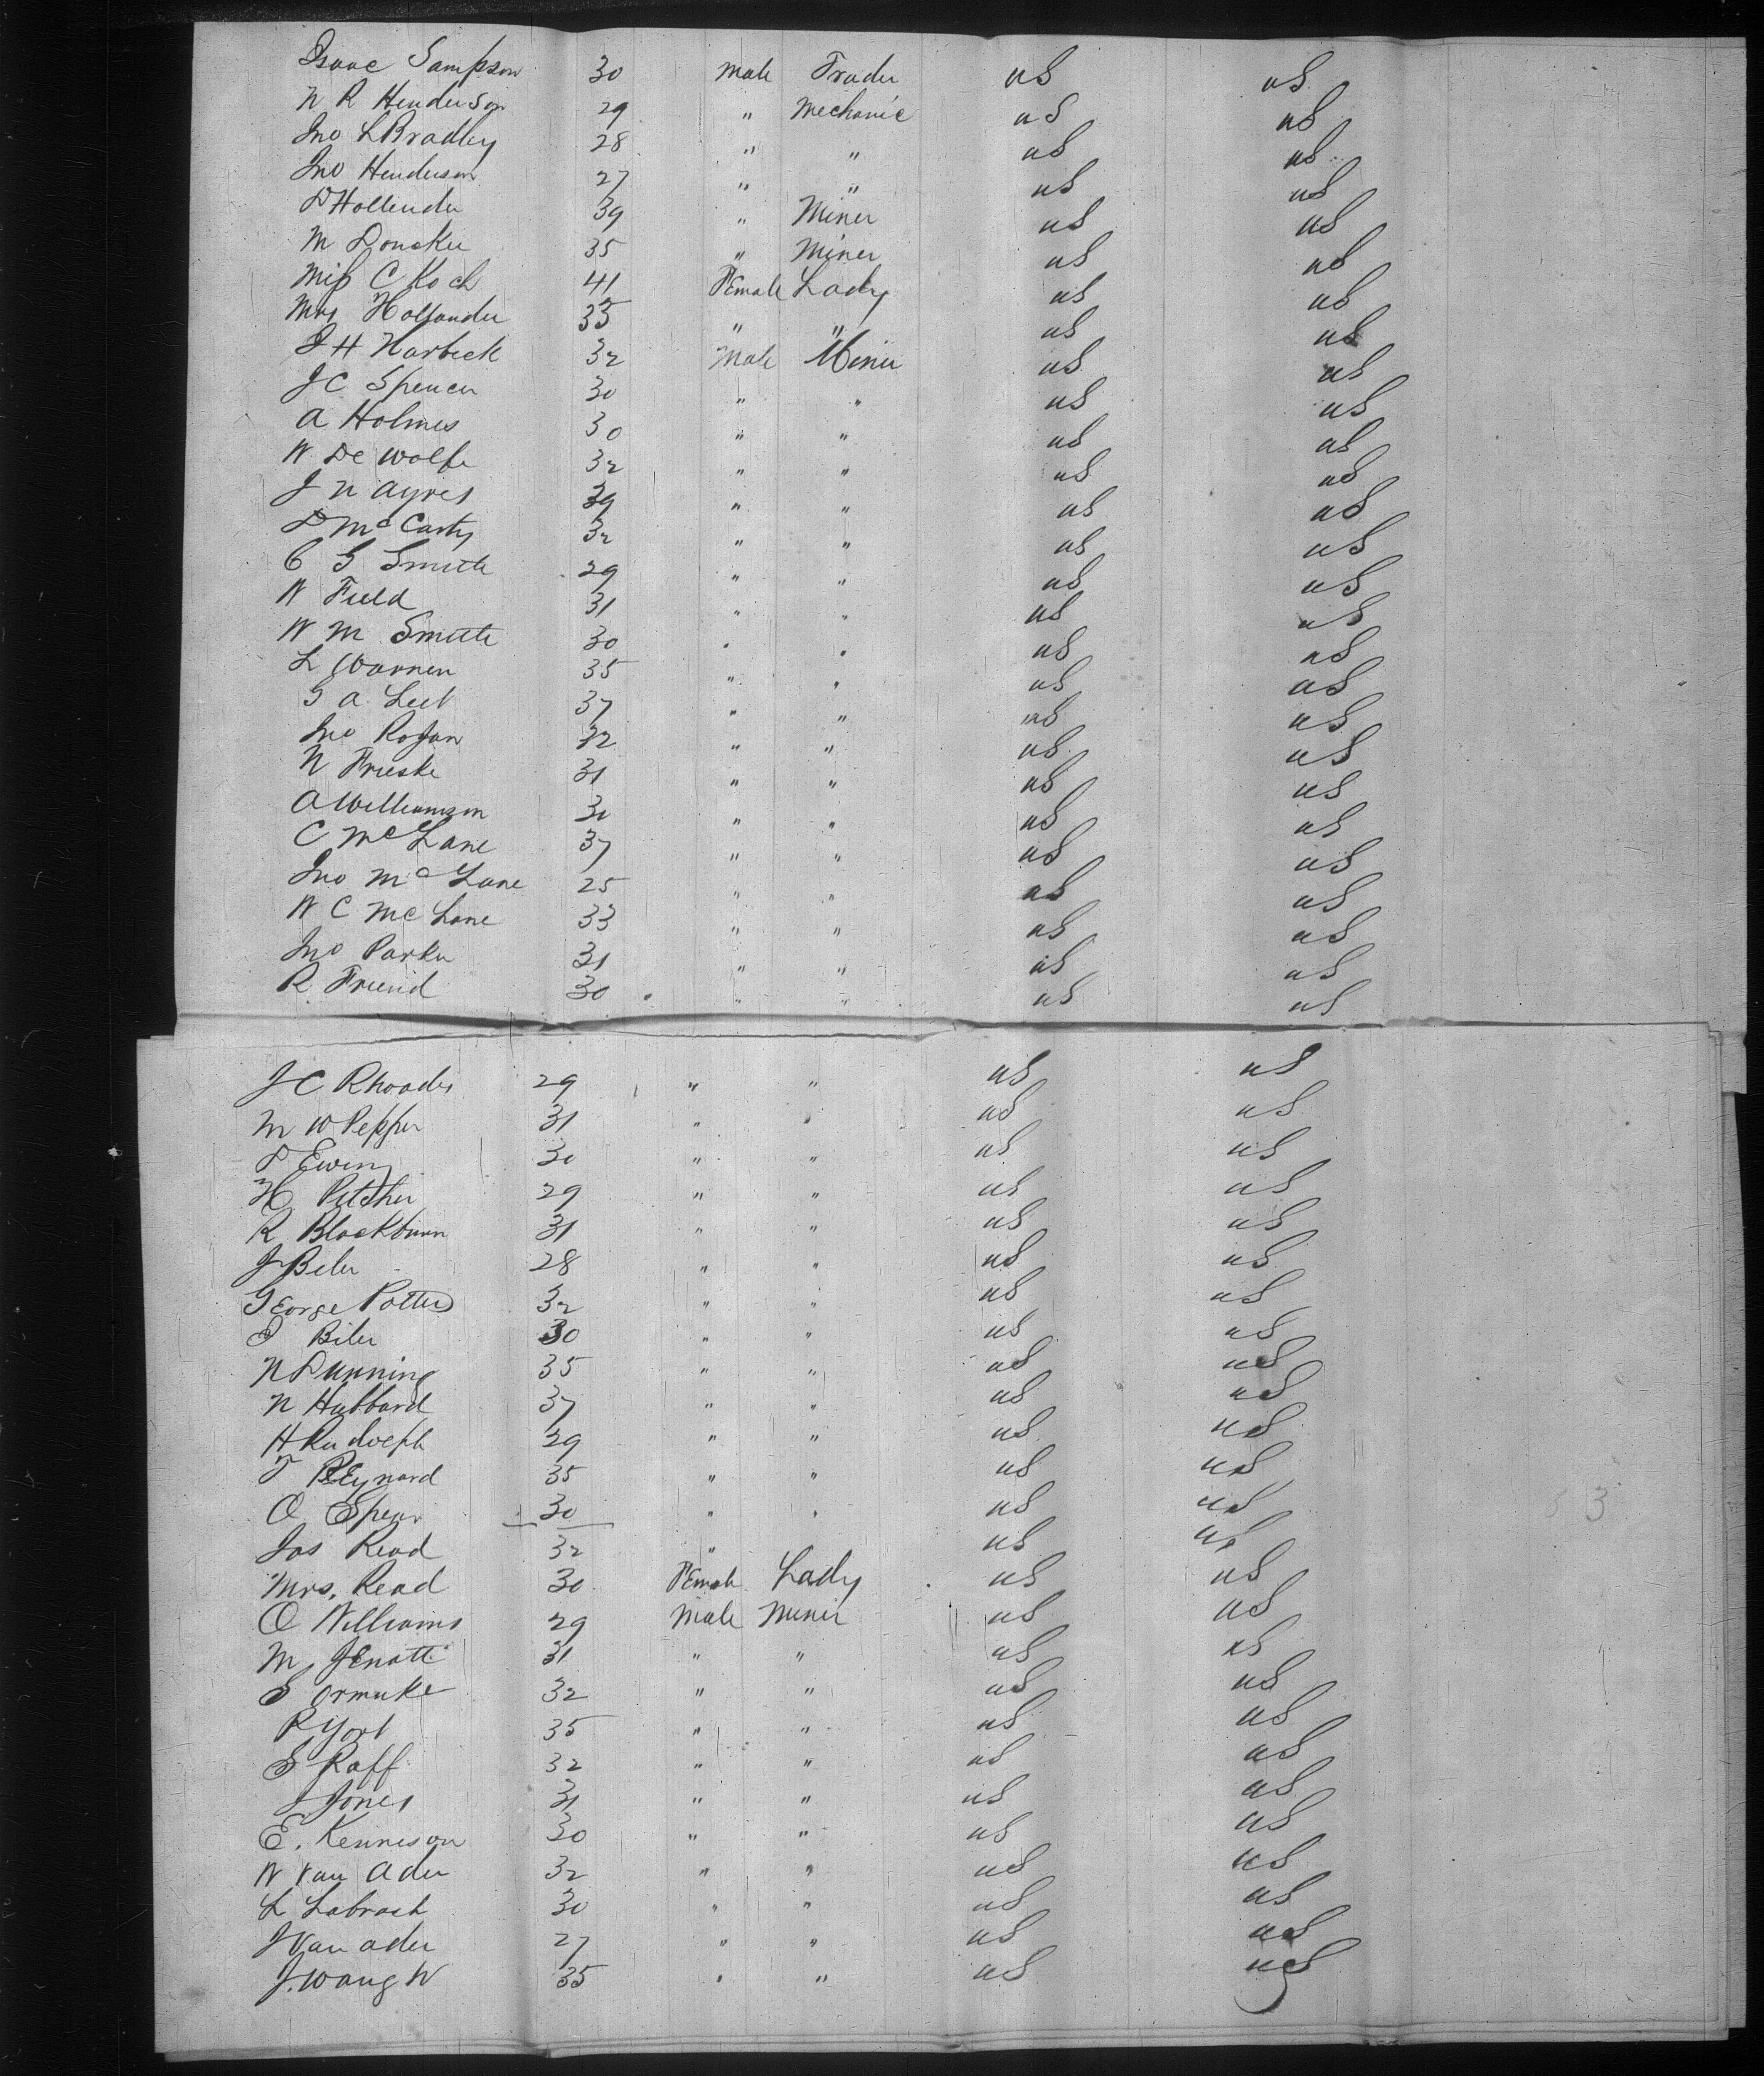 Isaac Sampson 30 Male Trader US US
N R Henderson 29 " Mechanic US US
Jno L Bradley 28 " " US US
Jno Henderson 27 " " US US
D Hollender 39 " Miner US US
M Doncker 35 " Miner US US
Miss C Koch 41 Female Lady US US
Mrs Hollander 35 " " US US
J H Harbeck 32 Male Miner US US
J C Spencer 30 " " US US
A Holmes 30 " " US US
W De Wolfe 32 " " US US
J N Ayres 39 " " US US
D McCarty 32 " " US US
C G Smith 29 " " US US
W Field 31 " " US US
W M Smith 30 " " US US
L Warren 35 " " US US
G A Leet 37 " " US US
Jno Rogan 32 " " US US
N Frieske 31 " " US US
A Williamson 30 " " US US
C McLane 37 " " US US
Jno McLane 25 " " US US
W C McLane 33 " " US US
Jno Parker 31 " " US US
R Freind 30 " " US US
J C Rhoades 29 " " US US
M W Pepper 31 " " US US
D Ewing 30 " " US US
H Pitcher 29 " " US US
R Blackburn 31 " " US US
J Beler 28 " " US US
George Potter 32 " " US US
S Biler 30 " " US US
N Dunning 35 " " US US
N Hubbard 37 " " US US
H Rudolph 29 " " US US
T REynard 35 " " US US
O Spear 30 " " US US
Jas Read 32 " US US
Mrs. Read 30 Female Lady US US
O Williams 29 Male Miner US US
M Jenott 31 " " US US
S Ormuke 32 " " US US
R Yort 35 " " US US
S Raff 32 " " US US
J Jones 31 " " US US
E. Kennison 30 " " US US
W Van Ader 32 " " US US
L Labrach 30 " " US US
J Van ader 27 " " US US
J. Waugh 35 " " US US